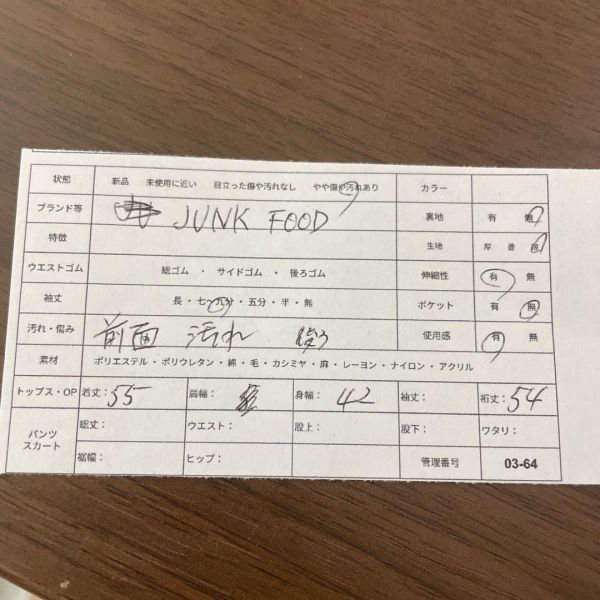 状態 新品 未使用に近い 目立った傷や汚れなし やや傷や汚れあり カラー
ブランド等 JUNK FOOD 裏地 有 無
特徴 生地 厚 普 薄
ウエストゴム 総ゴム ・ サイドゴム ・ 後ろゴム 伸縮性 有 無
袖丈 長・七~九分・五分・半・無 ポケット 有 無
汚れ・傷み 前面 汚れ 後ろ 使用感 有 無
素材 ポリエステル・ポリウレタン・綿・毛・カシミヤ・麻・レーヨン・ナイロン・アクリル
トップス・OP 着丈: 55 肩幅: 身幅: 42 袖丈: 裄丈: 54
パンツ スカート 総丈: ウエスト: 股上: 股下: ワタリ:
裾幅: ヒップ: 管理番号 03-64